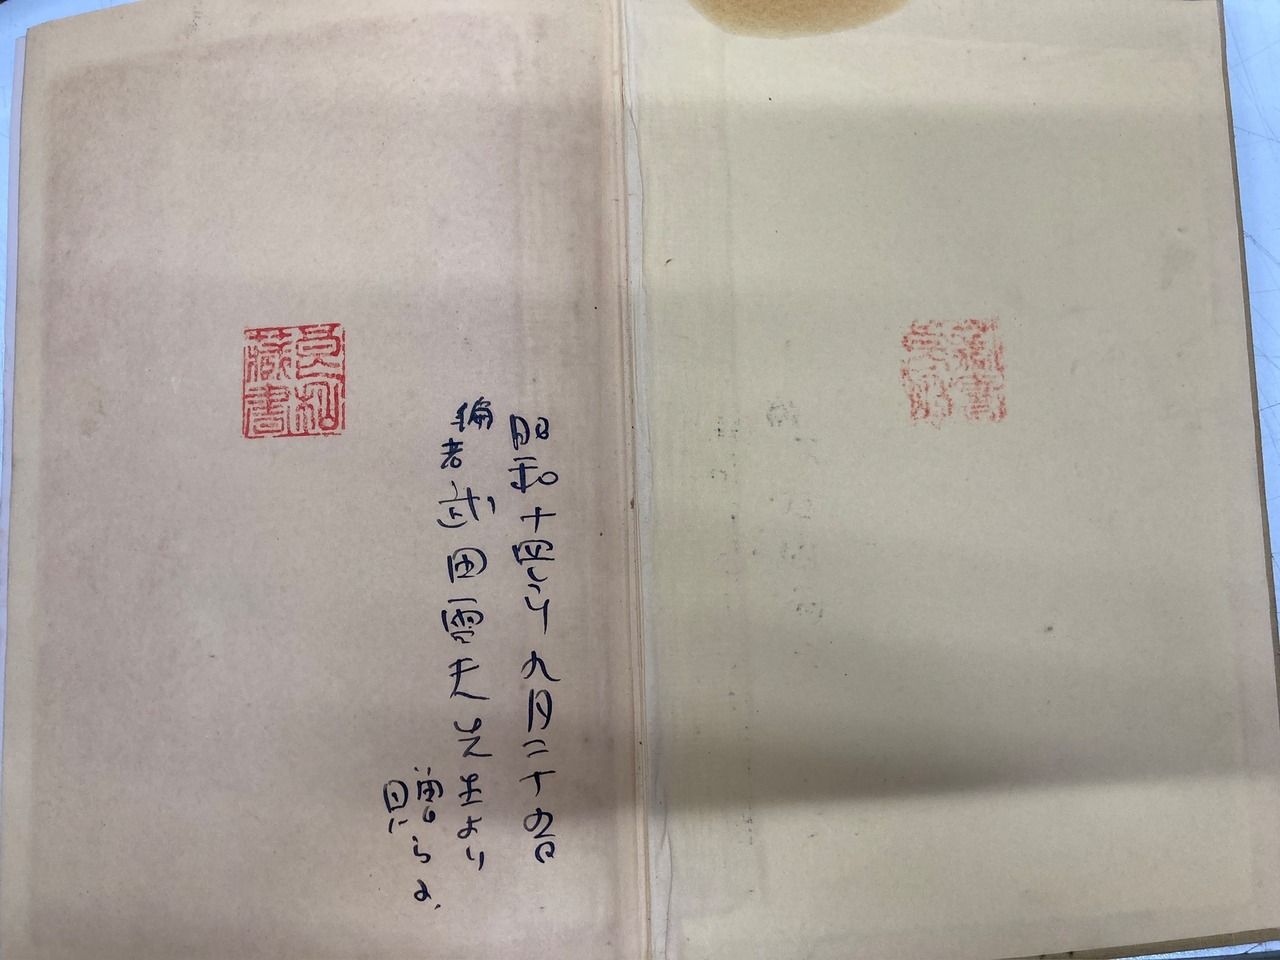 昭和十四年九月二十九日
編者武田霞夫先生より
贈らる
蔵書